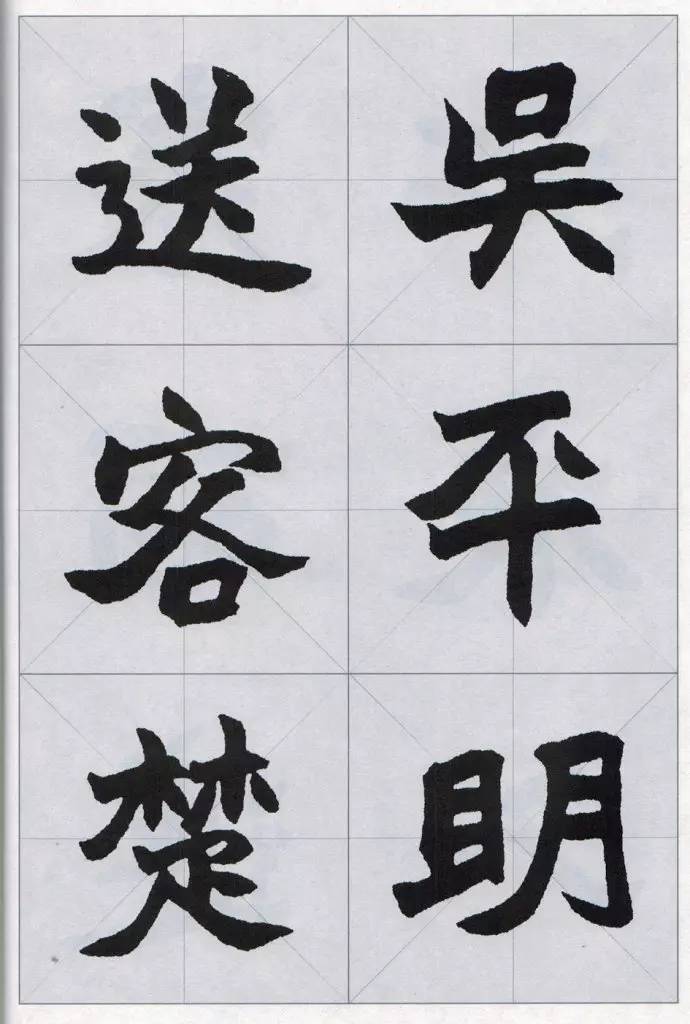 吳平明
送客楚